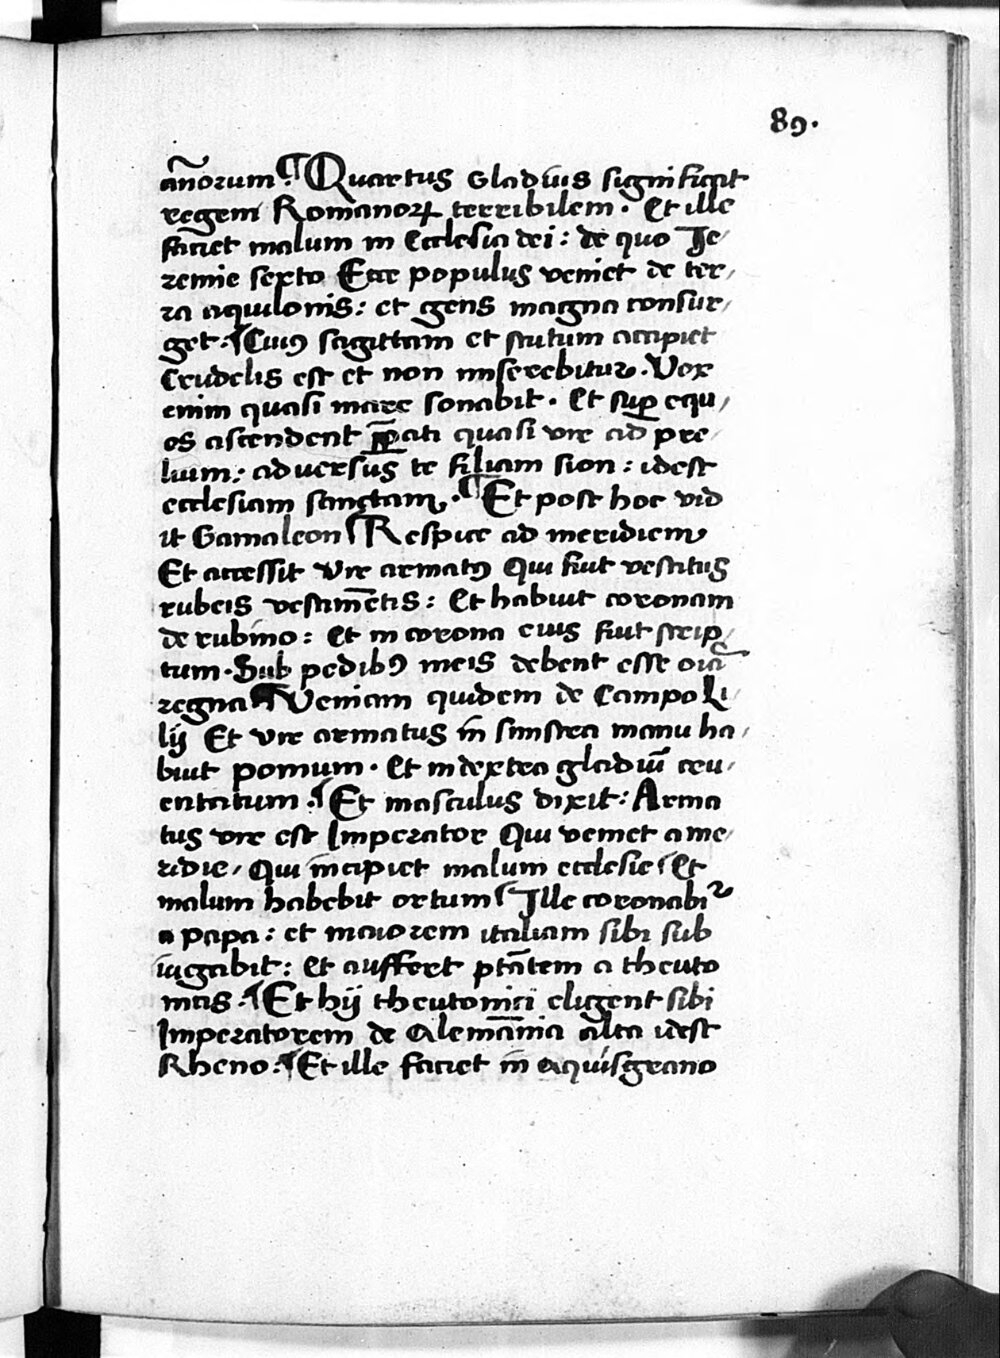 89.
an̄orum. ¶ Quartus Gladius significat
regem Romanoꝝ terribilem. Et ille
faciet malum in Ecclesia dei: de quo Je/
remie sexto Ecce populus veniet de ter/
ra aquilonis: et gens magna consur/
get. ¶ Cuiꝰ sagittam et scutum accipiet
Crudelis est et non miserebitur. Vox
enim quasi mare sonabit. Et suꝑ equ/
os ascendent p̄ꝑati quasi vir ad pre/
lium: adversus te filiam sion: idest
ecclesiam sanctam. ¶ Et post hoc vid
it Gamaleon ¶ Respice ad meridiem
Et accessit vir armatꝰ Qui fuit vestitus
rubeis vestimētis: Et habuit coronam
de rubino: Et in corona eius fuit scrip/
tum. Sub pedibꝰ meis debent esse oīa
regna ¶ Veniam quidem de Campo Li/
lij Et vir armatus in sinistra manu ha/
buit pomum. Et in dextra gladiū cru/
entatum. ¶ Et masculus dixit: Arma
tus vir est Imperator Qui veniet a me/
ridie/ Qui incipiet malum ecclesie/ Et
malum habebit ortum ¶ Ille coronabiᷣ
a papa: et maiorem italiam sibi sub
iugabit: Et auffert ptātem a theuto
nicis. ¶ Et hij theutonici eligent sibi
Imperatorem de Alemānia alta idest
Rheno: ¶ Et ille faciet in aquisgrano